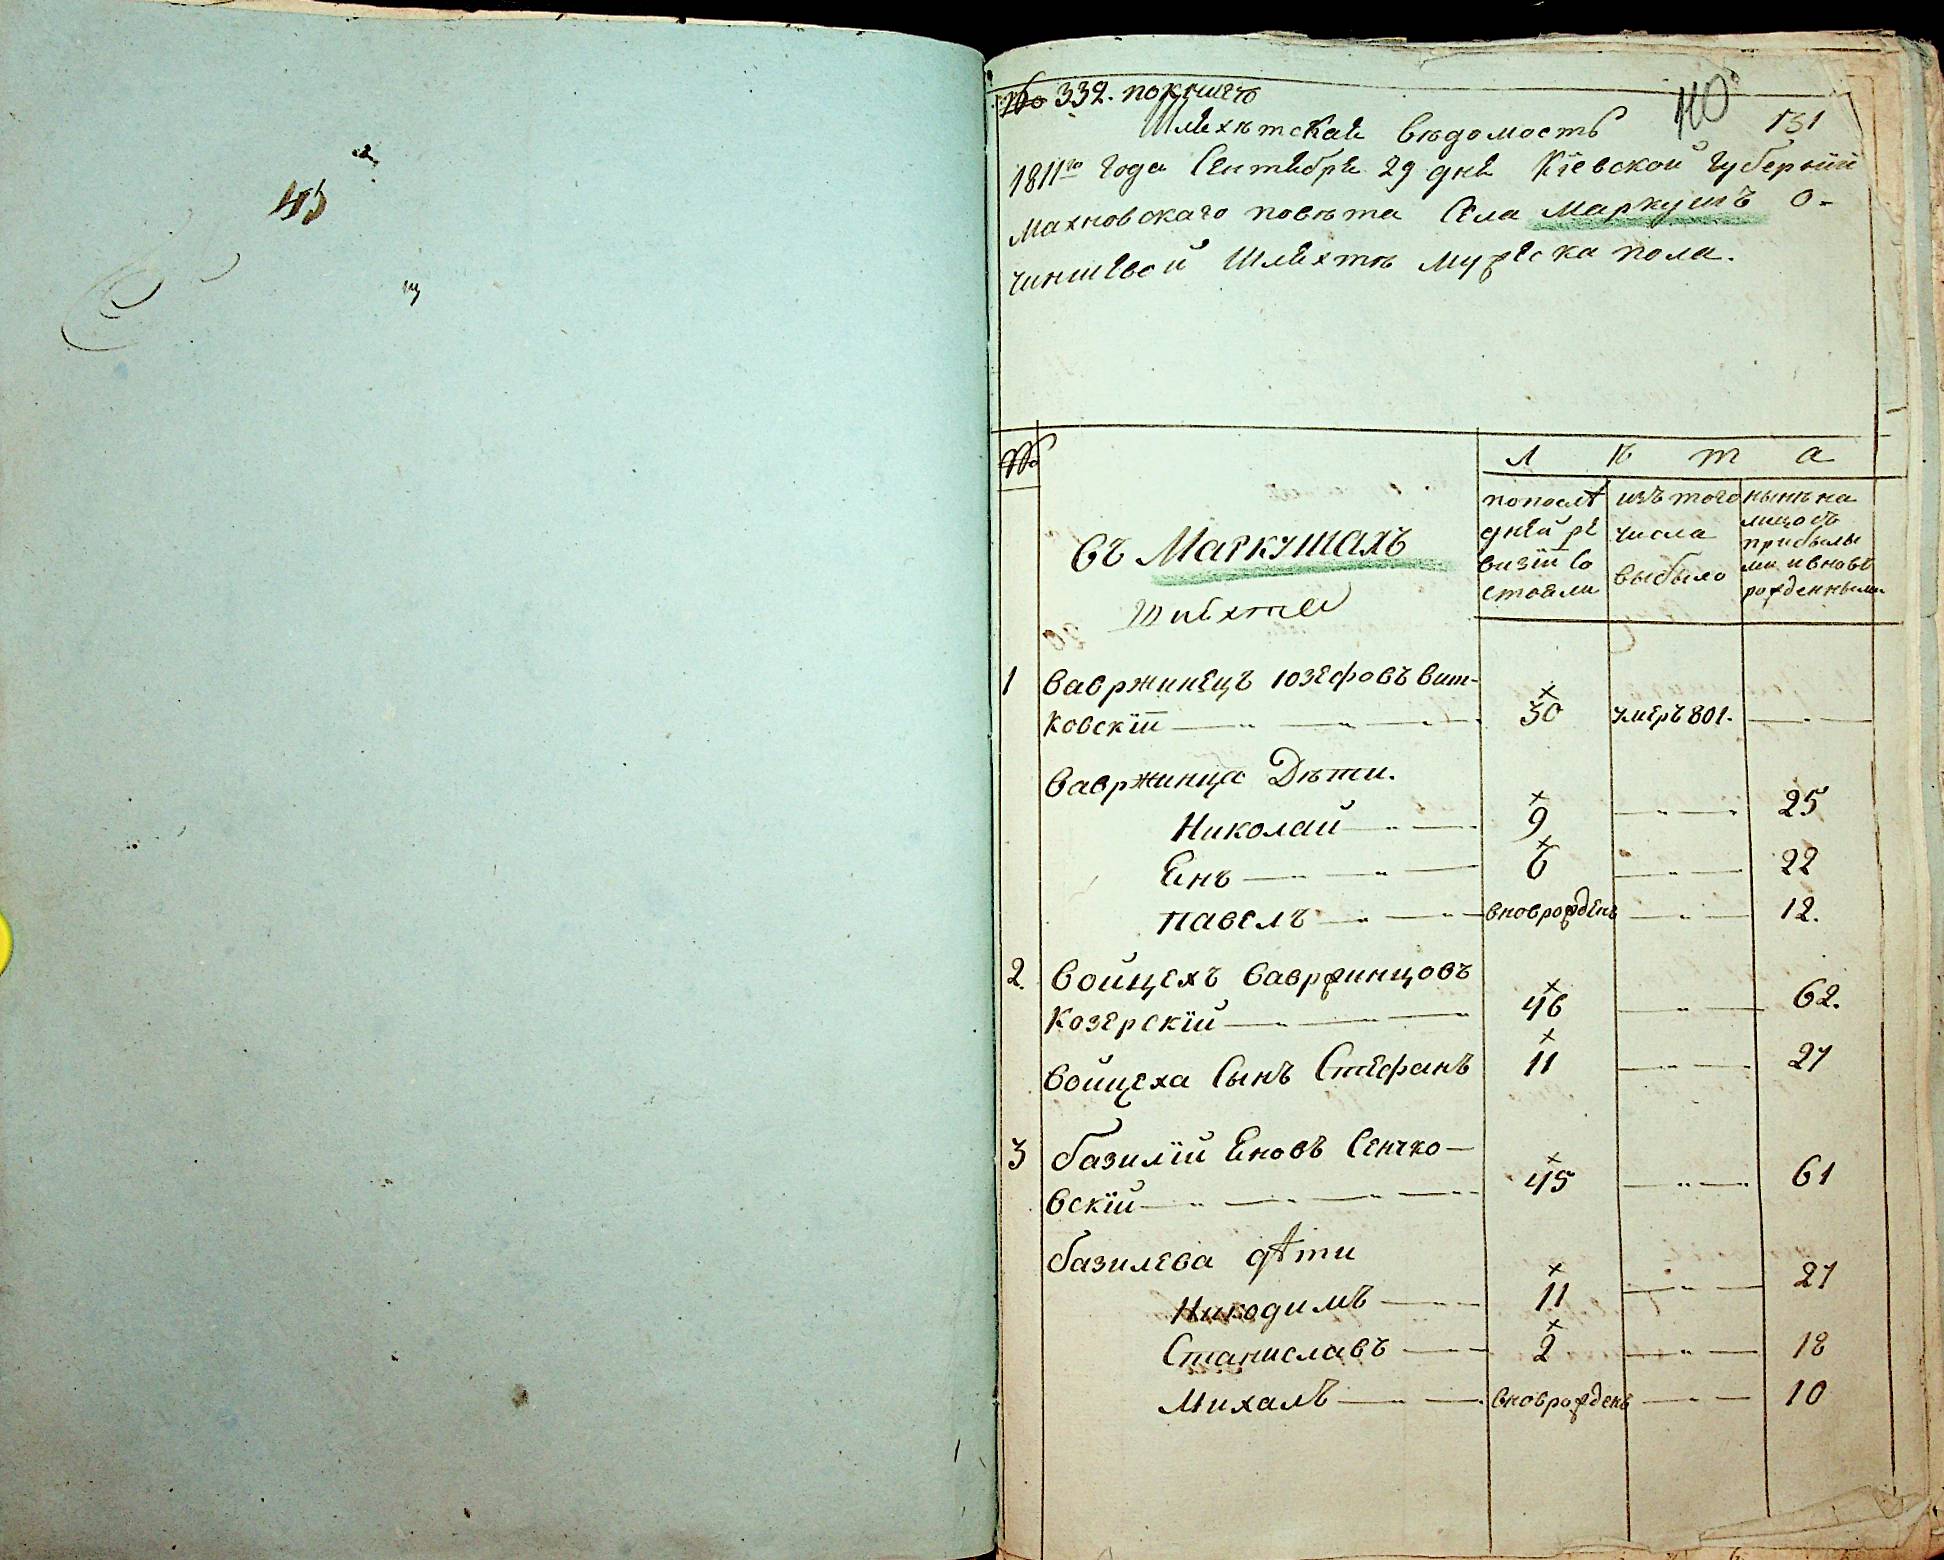 45
№ 332. по книгѣ
110
Шляхѣтская вѣдомость
131
1811го года Сентября 29 дня Кіевской губерніи
Махновскаго повѣта Села Маркушъ о-
чиншевой шляхтѣ мужеска пола.
№
Л ѣ т а
въ Маркушахъ
Шляхта
по послѣ
дней ре
визіи со
стояли
изъ того
числа
выбыло
нынѣ на
лицо съ
прибылы
ми и вновь
рожденными
1 Вавржинецъ Юзефовъ Вит-
ковскій 30 умеръ 801.
Вавржинца Дѣти.
Николай 9 25
Янъ 6 22
Павелъ вновь рожденъ 12.
2. Войцехъ Вавржинцовъ
Козерскій 46 62.
Войцеха Сынъ Стефанъ 11 27
3 Базилій Яновъ Сенчко-
вскій 45 61
Базилева дѣти
Никодимъ 11 27
Станиславъ 2 18
Михалъ вновь рожденъ 10